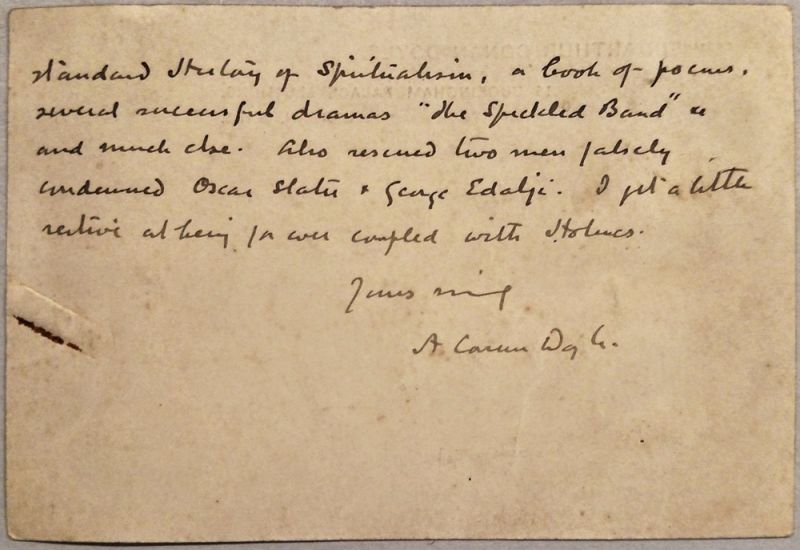 standard History of Spiritualism, a book of poems.
several successful dramas "The Speckled Band" &
and much else. Also rescued two men falsely
condemned Oscar Slater & George Edalji. I get a little
restive at being for ever coupled with Holmes.
Yours
A Conan Doyle.